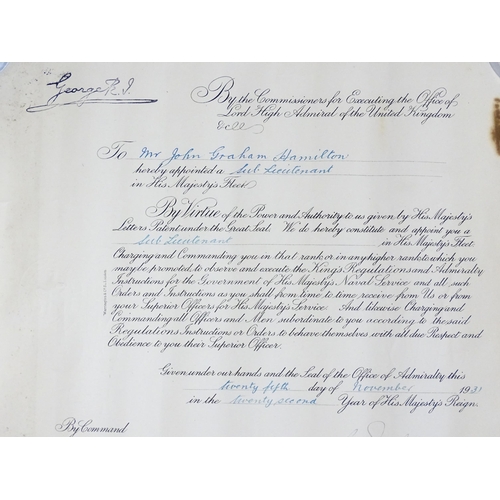 George R.I.
By the Commissioners for Executing the Office of
Lord High Admiral of the United Kingdom
&c &c
To Mr John Graham Hamilton
hereby appointed a Sub Lieutenant
in His Majesty's Fleet
By Virtue of the Power and Authority to us given by His Majesty's
Letters Patent under the Great Seal, We do hereby constitute and appoint you a
Sub Lieutenant in His Majesty's Fleet
Charging and Commanding you in that rank or in any higher rank to which you
may be promoted to observe and execute the King's Regulations and Admiralty
Instructions for the Government of His Majesty's Naval Service and all such
Orders and Instructions as you shall from time to time receive from Us or from
your Superior Officers for His Majesty's Service. And likewise Charging and
Commanding all Officers and Men subordinate to you according to the said
Regulations Instructions or Orders to behave themselves with all due Respect and
Obedience to you their Superior Officer.
Given under our hands and the Seal of the Office of Admiralty this
twenty fifth day of November 1931
in the twenty second Year of His Majesty's Reign.
By Command